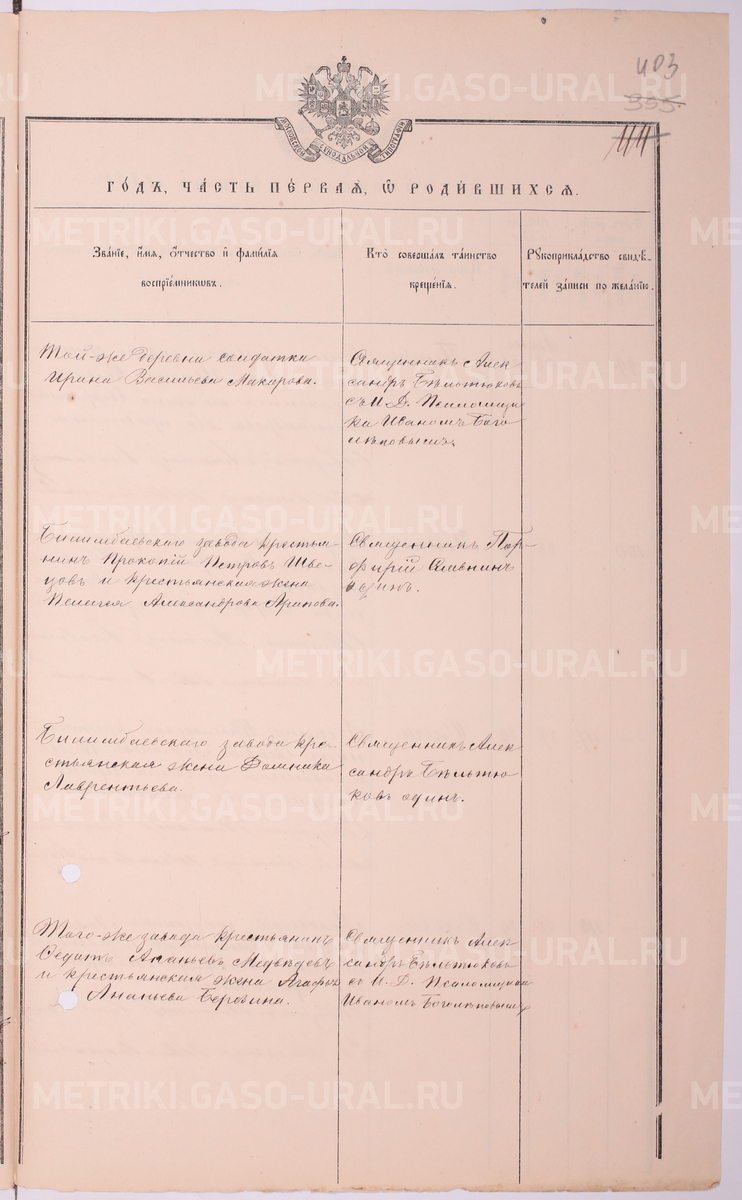 403
355
МОСКОВСКОЙ СѴНОДАЛЬНОЙ ТИПОГРАФІИ
ГО́ДЪ, ЧА́СТЬ ПЕ́РВАЯ, Ѡ҆ РОДИ́ВШИХСЯ.
Зва́нїе, и҆́мя, ѻ҆́тчество и҆ фами́лїя
воспрїе́мниковъ.
Кто̀ соверша́лъ та́инство
креще́нїя.
Рꙋкоприкла́дство свидѣ́-
телей за́писи по жела́нїю.
Той-же деревни солдатка
Ирина Васильева Макарова.
Священникъ Алек-
сандръ Бѣльтюковъ
съ И. Д. Псаломщи
ка Иваномъ Бого
лѣповымъ.
Билимбаевскаго завода крестья-
нинъ Прокопій Петровъ Шве-
цовъ и крестьянская жена
Пелагея Александрова Арапова.
Священникъ Пор-
фирій Славнинъ
одинъ.
Билимбаевскаго завода кре-
стьянская жена Домника
Лаврентьева.
Священникъ Алек
сандръ Бѣльтю
ковъ одинъ.
Того-же завода крестьянинъ
Федотъ Ананьевъ Медвѣдевъ
и крестьянская жена Агафья
Ананьева Березина.
Священникъ Алек
сандръ Бѣльтюковъ
съ И. Д. Псаломщика
Иваномъ Боголѣповымъ
METRIKI.GASO-URAL.RU